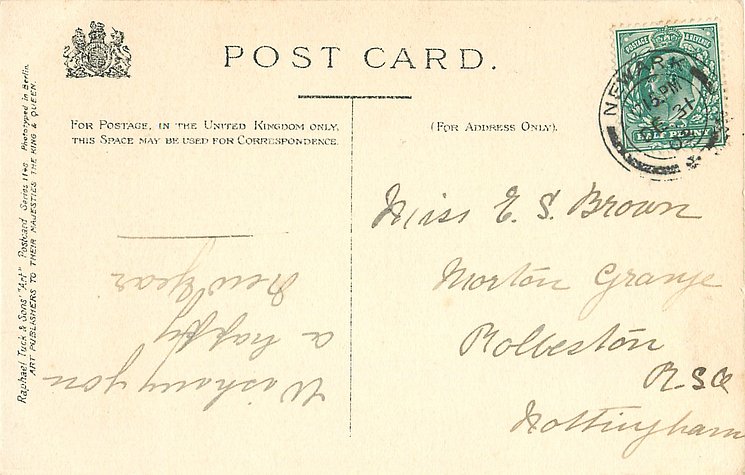 POST CARD.
FOR POSTAGE, IN THE UNITED KINGDOM ONLY,
THIS SPACE MAY BE USED FOR CORRESPONDENCE.
(FOR ADDRESS ONLY).
POSTAGE & REVENUE
HALF PENNY
NEWARK
PM
DE 31
Raphael Tuck & Sons' "Art" Postcard Series 1148 Phototyped in Berlin.
ART PUBLISHERS TO THEIR MAJESTIES THE KING & QUEEN.
Wishing you
a happy
New Year
Miss E. S. Brown
Morton Grange
Rolleston
R.S.O
Nottingham